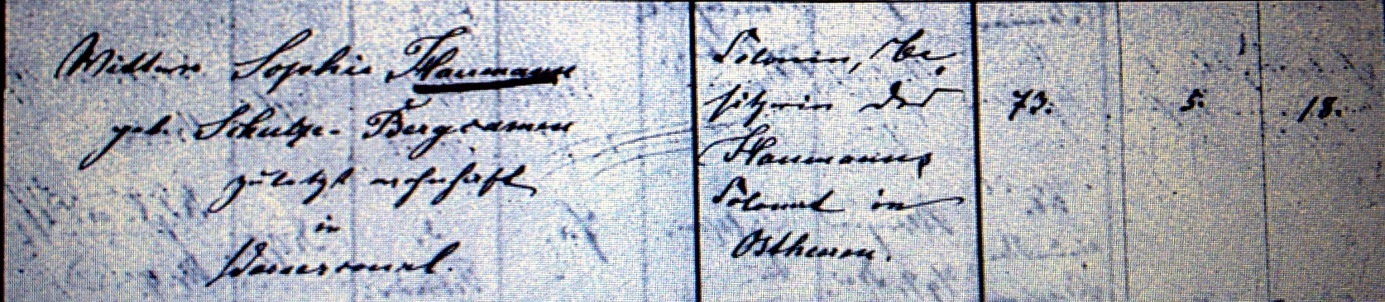 Wittwe Sophie Haumann
geb. Schulze-Bergcamen
zuletzt wohnhaft
in
Colonin, Be,
sitzerin des
Haumanns
Colonat in
Ostheeren.
73.
5.
18.